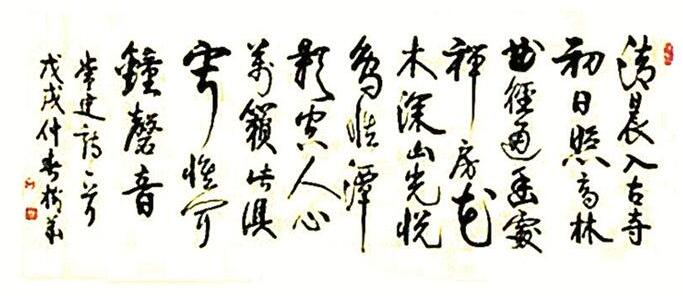 清晨入古寺
初日照高林
曲徑通幽處
禪房花
木深山光悦
鳥性潭
影空人心
萬籟此俱
寂惟聞
鐘磬音
常建詩一首
戊戌仲春